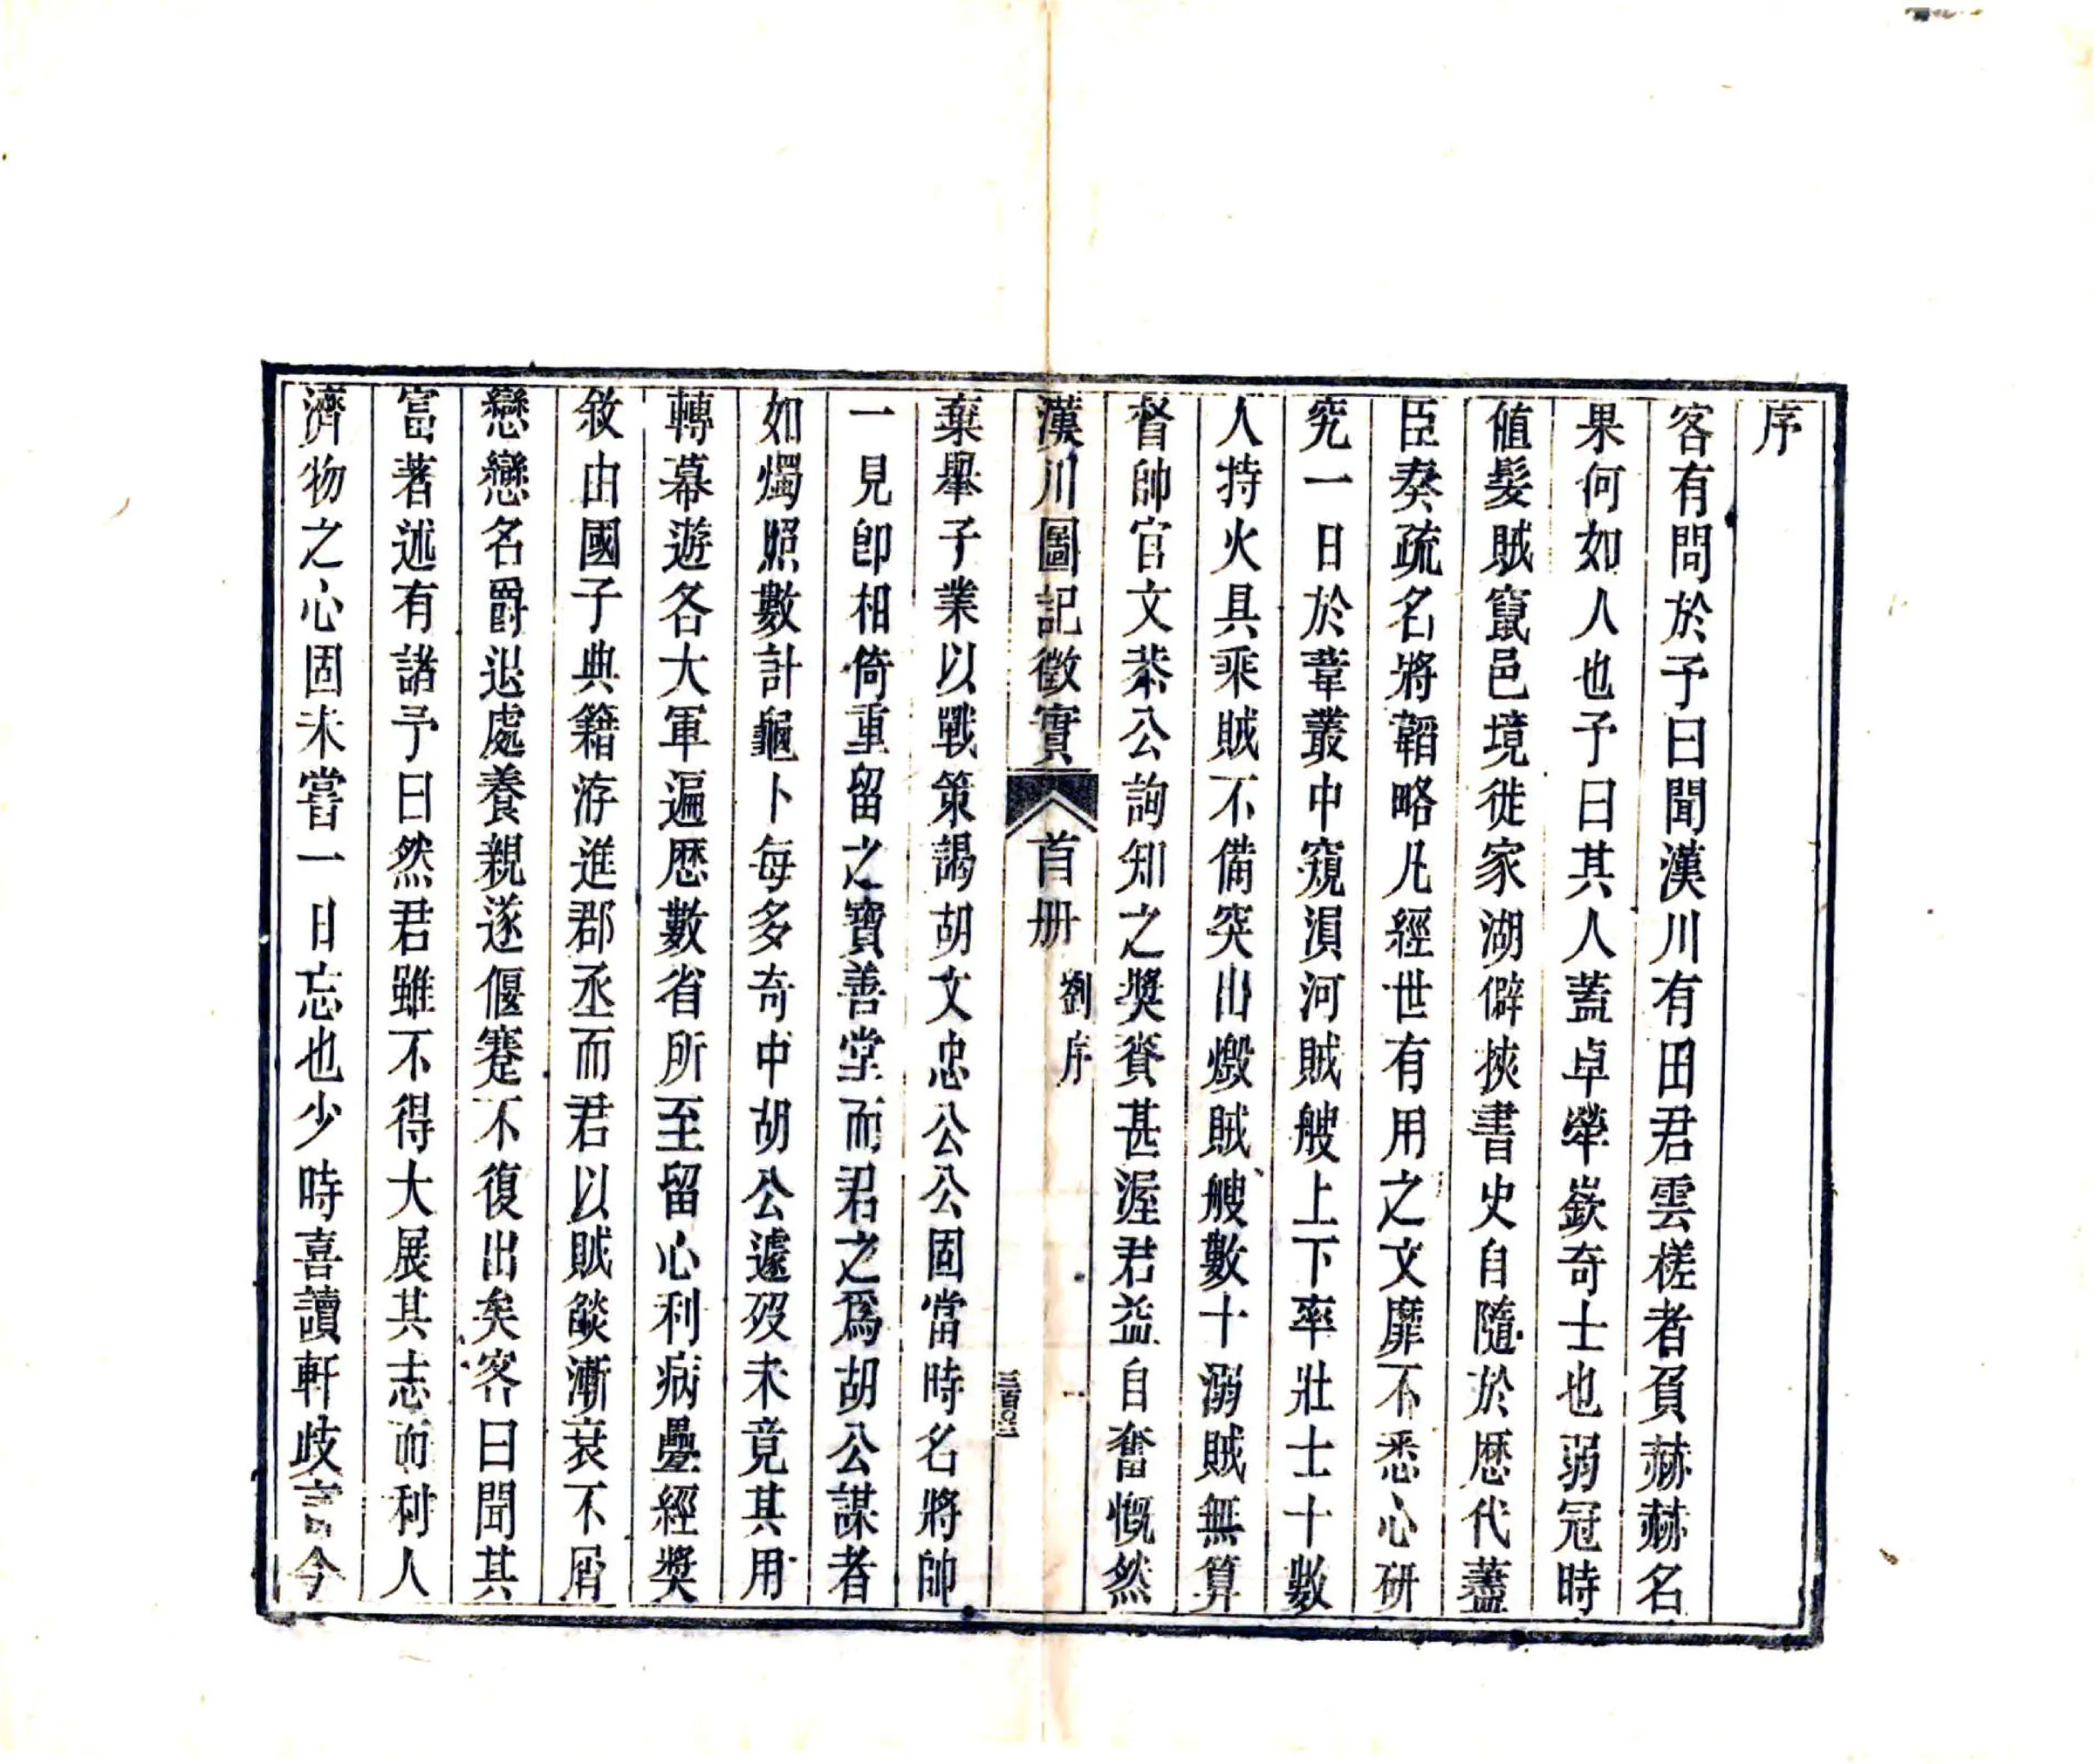 序
客有問於予曰聞漢川有田君雲槎者負赫赫名
果何如人也予曰其人蓋卓犖嶔奇士也弱冠時
値髮賊竄邑境徙家湖僻挾書史自隨於歷代藎
臣奏疏名將韜略凡經世有用之文靡不悉心研
究一日於葦叢中窺溳河賊艘上下率壯士十數
人持火具乘賊不備突出燬賊艘數十溺賊無算
督帥官文恭公詢知之獎賚甚渥君益自奮慨然
漢川圖記徵實 首册 劉序 一
棄舉子業以戰策謁胡文忠公公固當時名將帥
一見卽相倚重留之寶善堂而君之爲胡公謀者
如燭照數計龜卜每多奇中胡公遽歿未竟其用
轉幕遊各大軍遍歷數省所至留心利病疊經獎
敘由國子典籍洊進郡丞而君以賊燄漸衰不屑
戀戀名爵退處養親遂偃蹇不復出矣客曰聞其
富著述有諸予曰然君雖不得大展其志而利人
濟物之心固未嘗一日忘也少時喜讀軒歧言今